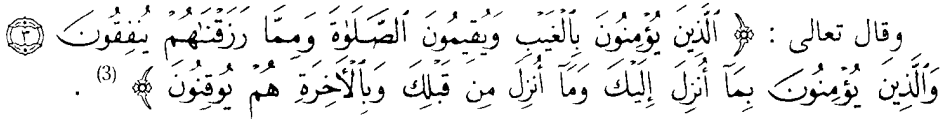 وقال تعالى : ﴿ ٱلَّذِينَ يُؤْمِنُونَ بِٱلْغَيْبِ وَيُقِيمُونَ ٱلصَّلَوٰةَ وَمِمَّا رَزَقْنَٰهُمْ يُنفِقُونَ ۝٣
وَٱلَّذِينَ يُؤْمِنُونَ بِمَآ أُنزِلَ إِلَيْكَ وَمَآ أُنزِلَ مِن قَبْلِكَ وَبِٱلْأَخِرَةِ هُمْ يُوقِنُونَ ﴾ (3) .